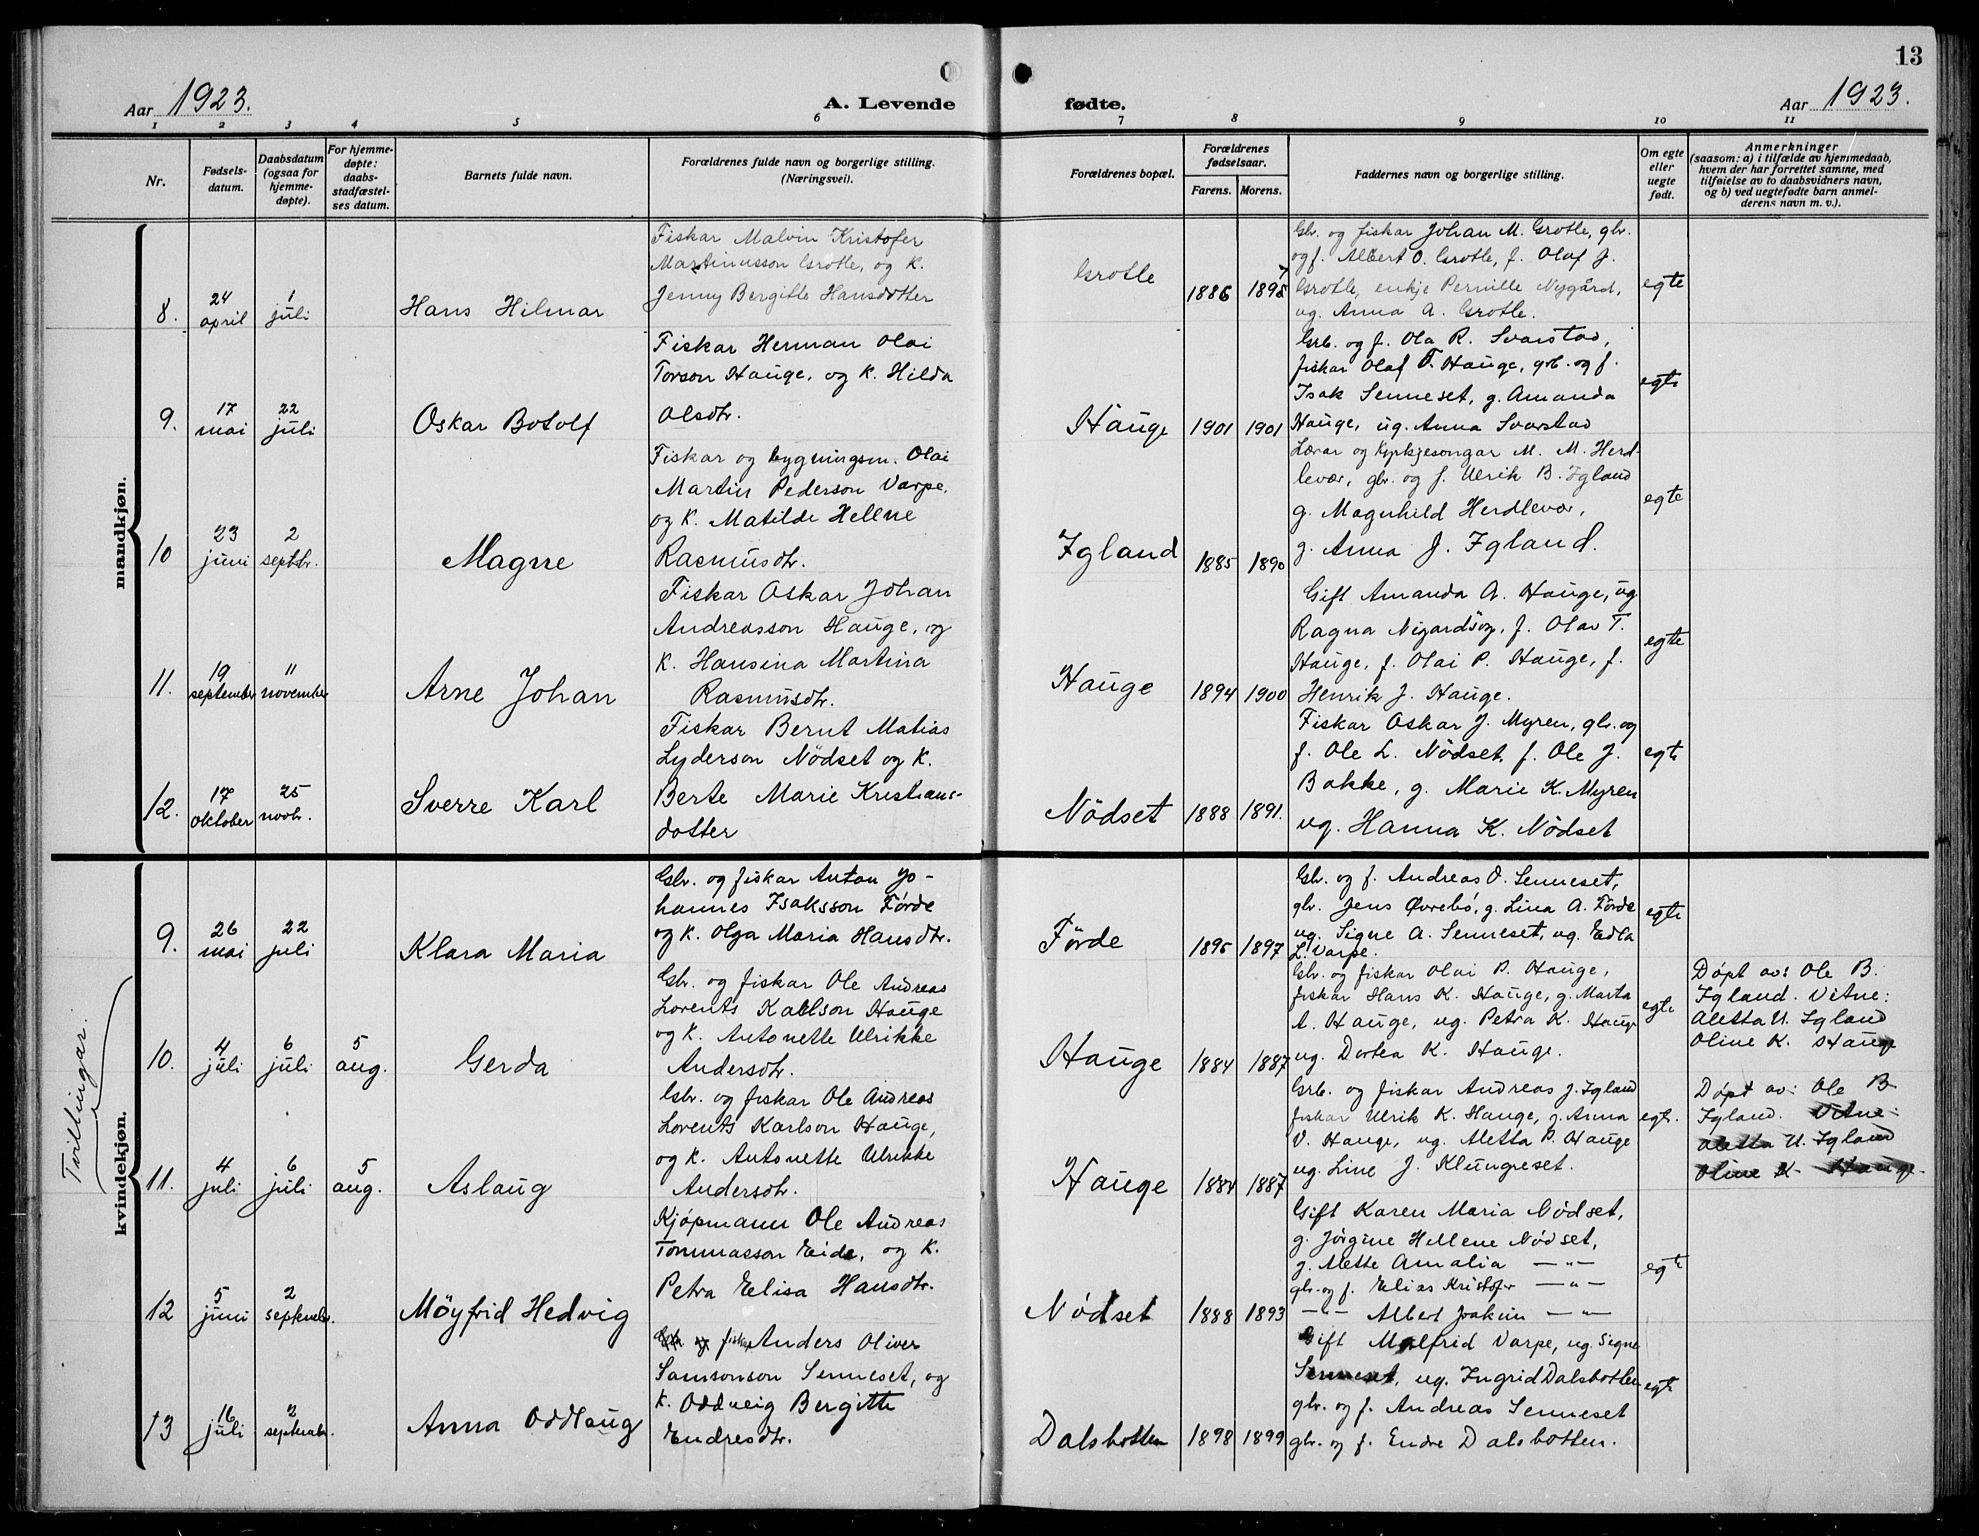 13
Aar 1923. A. Levende fødte. Aar 1923.
1 2 3 4 5 6 7 8 9 10 11
Nr.
Fødsels-
datum.
Daabsdatum
(ogsaa for
hjemme-
døpte).
For hjemme-
døpte:
daabs-
stadfæstel-
ses datum.
Barnets fulde navn.
Forældrenes fulde navn og borgerlige stilling.
(Næringsvei).
Forældrenes bopæl.
Forældrenes
fødselsaar.
Farens. Morens.
Faddernes navn og borgerlige stilling.
Om egte
eller
uegte
født.
Anmerkninger
(saasom: a) i tilfælde av hjemmedaab,
hvem der har forrettet samme, med
tilføielse av to daabsvidners navn,
og b) ved uegtefødte barn anmel-
derens navn m. v.).
mandkjøn.
8.
24
april
1
juli
Hans Hilmar
Fiskar Malvin Kristofer
Martinusson Grotle, og K.
Jenny Bergitte Hansdotter
Grotle
1886
Gbr. og fiskar Johan M. Grotle, gbr.
og f. Albert O. Grotle, f. Olaf J.
Grotle, enkje Pernille Nygård,
ug. Anna A. Grotle.
egte
9.
17
mai
22
juli
Oskar Botolf
Fiskar Herman Olai
Torson Hauge, og K. Hilda
Olsdtr.
Hauge
1901 1901
Grb. og f. Ola R. Svarstad,
fiskar Olaf T. Hauge, grb. og f.
Isak Senneset, g. Amanda
Hauge, ug. Anna Svarstad
egte
10
23
juni
2
septbr.
Magne
Fiskar og bygningsm. Olai
Martin Pederson Varpe,
og K. Matilde Hellne
Rasmusdtr.
Igland
1885 1890
Lærar og Kyrkjesongar M. M. Herd-
levær, gbr. og f. Ulrik B. Igland
g. Magnhild Herdlevær,
g. Anna J. Igland.
egte
11.
19
september
11
november
Arne Johan
Fiskar Oskar Johan
Andreasson Hauge, og
K. Hansina Martina
Rasmusdtr.
Hauge
1894 1900
Gift Amanda A. Hauge, ug
Ragna Nigardsøy, f. Olav T.
Hauge, f. Olai P. Hauge, f.
Henrik J. Hauge.
egte
12.
17
oktober
25
novbr.
Sverre Karl
Fiskar Bernt Matias
Lyderson Nödset og K.
Berte Marie Kristians-
dotter
Nödset
1888 1891.
Fiskar Oskar J. Myren, gbr. og
f. Ole L. Nödset, f. Ole J.
Bakke, g. Marie K. Myren
ug. Hanna K. Nödset
egte
kvindekjøn.
Tvillingar.
9.
26
mai
22
juli
Klara Maria
Gbr. og fiskar Anton Jo-
hannes Isaksson Förde
og K. Olga Maria Hansdtr.
Förde
1895 1897
Gbr. og f. Andreas O. Senneset,
gbr. Jens Øvrebö, g. Lina A. Förde
ug. Signe A. Senneset, ug. Edla
L. Varpe.
egte
10.
4
juli
6
juli
5
aug.
Gerda
Gbr. og fiskar Ole Andreas
Lorents Karlson Hauge
og K. Antonette Ulrikke
Andersdtr.
Hauge
1884 1887
Gbr. og fiskar Olai P. Hauge,
fiskar Hans K. Hauge, g. Marta
A. Hauge, ug. Petra K. Hauge
ug. Dortea K. Hauge.
egte
Døpt av: Ole B.
Igland. Vitne:
Aletta U. Igland
Oline K. Hauge
11.
4
juli
6
juli
5
aug.
Aslaug
Gbr. og fiskar Ole Andreas
Lorents Karlson Hauge,
og K. Antonette Ulrikke
Andersdtr.
Hauge
1884 1887
Grb. og fiskar Andreas J. Igland
fiskar Ulrik K. Hauge, g. Anna
V. Hauge, ug. Aletta P. Hauge
ug. Line J. Klungreset.
egt.
Døpt av: Ole B
Igland. Vitne:
Aletta U. Igland
Oline K Hauge.
12
5
juni
2
septembr.
Möyfrid Hedvig
Kjøpmann Ole Andreas
Tommasson Eide, og K.
Petra Elisa Hansdtr.
Nödset
1888 1893
Gift Karen Maria Nödset,
g. Jörgine Hellene Nödset,
g. Alette Amalia — " —
gbr. og f. Elias Kristofer — " —
— " — Albert Joakim — " —
egte
13
16
juli
2
septembr.
Anna Oddlaug
Gbr. og fiskar Anders Oliver
Samsonson Senneset, og
K. Oddneig Bergitte
Endresdtr.
Dalsbotten
1898 1899
Gift Malfrid Varpe, ug. Signe
Senneset, ug. Ingrid Dalsbotten
gbr. og f. Andreas Senneset
gbr. og f. Endre Dalsbotten.
egte